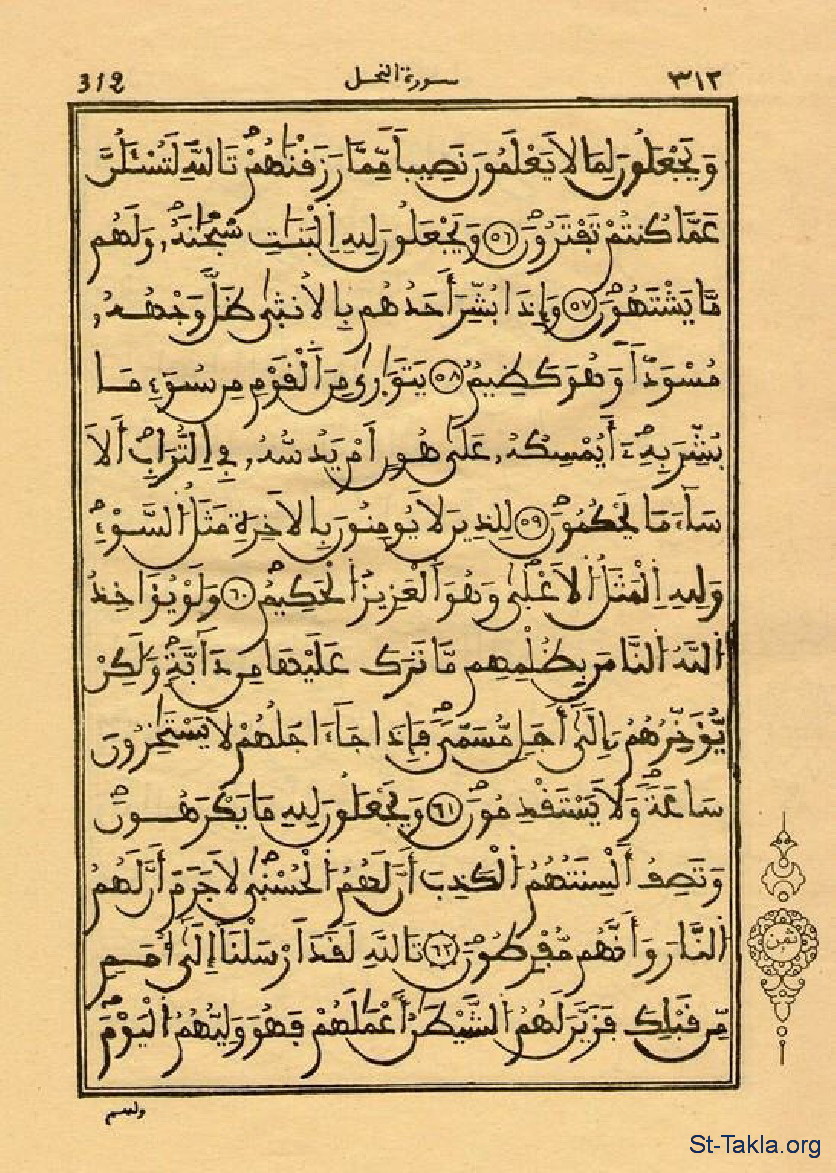 312 سورة النحل ٣١٢
وَيَجْعَلُونَ لِمَا لَا يَعْلَمُونَ نَصِيباٗ مِّمَّا رَزَقْنَٰهُمْ تَاللَّهِ لَتُسْـَٔلُنَّ
عَمَّا كُنتُمْ تَفْتَرُونَ ٥٦ وَيَجْعَلُونَ لِلهِ اِلْبَنَٰتِ سُبْحَٰنَهُۥ وَلَهُم
مَّا يَشْتَهُونَ ٥٧ وَإِذَا بُشِّرَ أَحَدُهُم بِالْأُنثَىٰ ظَلَّ وَجْهُهُۥ
مُسْوَدّاٗ وَهُوَ كَظِيمٌ ٥٨ يَتَوَٰرَىٰ مِنَ اَلْقَوْمِ مِن سُوٓءِ مَا
بُشِّرَ بِهِۦٓ أَيُمْسِكُهُۥ عَلَىٰ هُونٍ اَمْ يَدُسُّهُۥ فِي اِلتُّرَابِ أَلَا
سَآءَ مَا يَحْكُمُونَ ٥٩ لِلذِينَ لَا يُومِنُونَ بِالَاخِرَةِ مَثَلُ اُلسَّوْءِ
وَلِلهِ اِلْمَثَلُ اُلَاعْلَىٰ وَهُوَ اَلْعَزِيزُ اُلْحَكِيمُ ٦٠ وَلَوْ يُوَٰخِذُ
اُللَّهُ اُلنَّاسَ بِظُلْمِهِم مَّا تَرَكَ عَلَيْهَا مِن دَآبَّةٖ وَلَٰكِنْ
يُّوَخِّرُهُمُۥٓ إِلَىٰٓ أَجَلٖ مُّسَمّىٗ فَإِذَا جَآءَ اجَلُهُمْ لَا يَسْتَٰخِرُونَ
سَاعَةٗ وَلَا يَسْتَقْدِمُونَ ٦١ وَيَجْعَلُونَ لِلهِ مَا يَكْرَهُونَ
وَتَصِفُ أَلْسِنَتُهُمُ اُلْكَذِبَ أَنَّ لَهُمُ اُلْحُسْنَىٰ لَا جَرَمَ أَنَّ لَهُمُ
اُلنَّارَ وَأَنَّهُم مُّفْرِطُونَ ٦٢ تَاللَّهِ لَقَدَ اَرْسَلْنَآ إِلَىٰٓ أُمَمٖ
مِّن قَبْلِكَ فَزَيَّنَ لَهُمُ اُلشَّيْطَٰنُ أَعْمَٰلَهُمْ فَهُوَ وَلِيُّهُمُ اُلْيَوْمَ
ثمن
ولهم
St-Takla.org